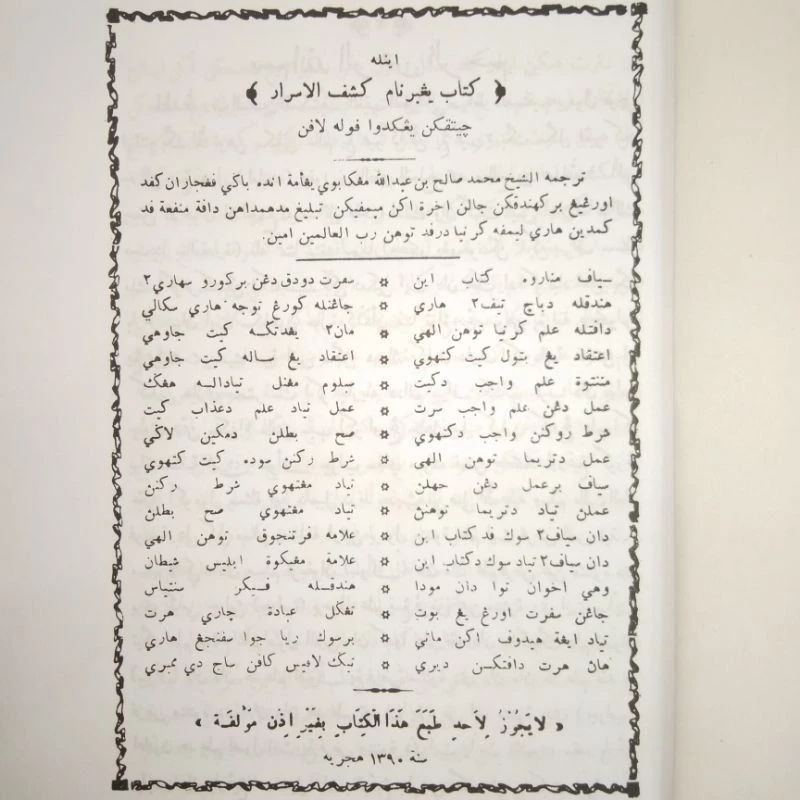 اينله
﴿ كتاب يڠبرنام كشف الاسرار ﴾
چيتقكن يڠكدوا فوله لافن
ترجمه الشيخ محمد صالح بن عبدالله مڠكابوي يڠأمة انده باڬي ڤڠجاران كڤد
اورڠيڠ بركهندقكن جالن اخرة اكن ميمڤيكن تبليغ مدهمداهن داڤة منفعة ڤد
كمدين هاري ليمڤه كرنيا درڤد توهن رب العالمين امين.
سياڤ مناروه كتاب اين ✵ سڤرت دودق دڠن بركورو سهاري٢
هندقله دباچ تيڤ٢ هاري ✵ جاڠنله كورڠ توجه هاري سكالي
داڤتله علم كرنيا توهن الهي ✵ مان٢ يڠدتڬه كيت جاوهي
اعتقاد يڠ بتول كيت كتهوي ✵ اعتقاد يڠ ساله كيت جاوهي
منتوة علم واجب دكيت ✵ سلوم مڠنل تياداله هڠڬ
عمل دڠن علم واجب سرت ✵ عمل تياد علم دعذاب كيت
شرط روكنن واجب دكتهوي ✵ صح بطلن دمكين لاڬي
عمل دتريما توهن الهي ✵ شرط ركنن سوده كيت كتهوي
سياڤ برعمل دڠن جهلن ✵ تياد مڠتهوي شرط ركنن
عملن تياد دتريما توهنن ✵ تياد مڠتهوي صح بطلن
دان سياڤ٢ سوك ڤد كتاب اين ✵ علامه ڤرتنجوق توهن الهي
دان سياڤ٢ تياد سوك دكتاب اين ✵ علامة مڠيكوة ابليس شيطان
وهي اخوان توا دان مودا ✵ هندقله ڤيكر سنتياس
جاڠن سڤرت اورڠ يڠ بوت ✵ تڠڬل عبادة چاري هرت
تياد ايڠة هيدوڤ اكن ماتي ✵ برسوك ريا جوا سڤنجڠ هاري
هان هرت داڤتكن ديري ✵ تيڬ لاڤيس كاڤن ساج دي ممبري
« لَا يَجُوْزُ لِاَحدٍ طَبَعَ هَذَا الْكِتَابِ بِغَيْرِ اِذْنِ مَوْلفَة »
سنة ١٣٩٠ هجريه